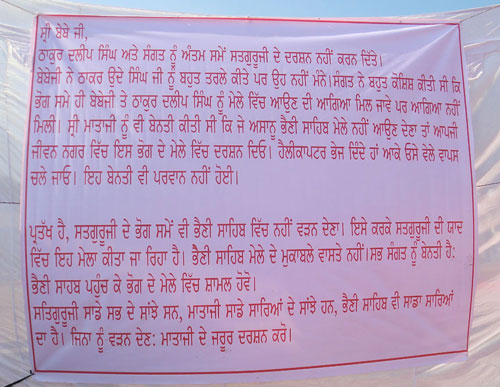 ਸ੍ਰੀ ਬੇਬੇ ਜੀ,
ਠਾਕੁਰ ਦਲੀਪ ਸਿੰਘ ਅਤੇ ਸੰਗਤ ਨੂੰ ਅੰਤਮ ਸਮੇਂ ਸਤਗੁਰੂਜੀ ਦੇ ਦਰਸ਼ਨ ਨਹੀਂ ਕਰਨ ਦਿੱਤੇ।
ਬੇਬੇਜੀ ਨੇ ਠਾਕੁਰ ਉਦੇ ਸਿੰਘ ਜੀ ਨੂੰ ਬਹੁਤ ਤਰਲੇ ਕੀਤੇ ਪਰ ਉਹ ਨਹੀਂ ਮੰਨੇ।ਸੰਗਤ ਨੇ ਬਹੁਤ ਕੋਸ਼ਿਸ਼ ਕੀਤੀ ਸੀ ਕਿ
ਭੋਗ ਸਮੇਂ ਹੀ ਬੇਬੇਜੀ ਤੇ ਠਾਕੁਰ ਦਲੀਪ ਸਿੰਘ ਨੂੰ ਮੇਲੇ ਵਿੱਚ ਆਉਣ ਦੀ ਆਗਿਆ ਮਿਲ ਜਾਵੇ ਪਰ ਆਗਿਆ ਨਹੀਂ
ਮਿਲੀ। ਸ੍ਰੀ ਮਾਤਾਜੀ ਨੂੰ ਵੀ ਬੇਨਤੀ ਕੀਤੀ ਸੀ ਕਿ ਜੇ ਅਸਾਨੂ ਭੈਣੀ ਸਾਹਿਬ ਮੇਲੇ ਨਹੀਂ ਆਉਣ ਦੇਣਾ ਤਾਂ ਆਪਜੀ
ਜੀਵਨ ਨਗਰ ਵਿੱਚ ਇਸ ਭੋਗ ਦੇ ਮੇਲੇ ਵਿੱਚ ਦਰਸ਼ਨ ਦਿਓ। ਹੈਲੀਕਾਪਟਰ ਭੇਜ ਦਿੰਦੇ ਹਾਂ ਆਕੇ ਓਸੇ ਵੇਲੇ ਵਾਪਸ
ਚਲੇ ਜਾਓ। ਇਹ ਬੇਨਤੀ ਵੀ ਪਰਵਾਨ ਨਹੀਂ ਹੋਈ।
ਪ੍ਰਤੱਖ ਹੈ, ਸਤਗੁਰੂਜੀ ਦੇ ਭੋਗ ਸਮੇਂ ਵੀ ਭੈਣੀ ਸਾਹਿਬ ਵਿੱਚ ਨਹੀਂ ਵੜਨ ਦੇਣਾ। ਇਸੇ ਕਰਕੇ ਸਤਗੁਰੂਜੀ ਦੀ ਯਾਦ
ਵਿੱਚ ਇਹ ਮੇਲਾ ਕੀਤਾ ਜਾ ਰਿਹਾ ਹੈ। ਭੈਣੀ ਸਾਹਿਬ ਮੇਲੇ ਦੇ ਮੁਕਾਬਲੇ ਵਾਸਤੇ ਨਹੀਂ।ਸਭ ਸੰਗਤ ਨੂੰ ਬੇਨਤੀ ਹੈ:
ਭੈਣੀ ਸਾਹਬ ਪਹੁੰਚ ਕੇ ਭੋਗ ਦੇ ਮੇਲੇ ਵਿੱਚ ਸ਼ਾਮਲ ਹੋਵੋ।
ਸਤਿਗੁਰੂਜੀ ਸਾਡੇ ਸਭ ਦੇ ਸਾਂਝੇ ਸਨ, ਮਾਤਾਜੀ ਸਾਡੇ ਸਾਰਿਆਂ ਦੇ ਸਾਂਝੇ ਹਨ, ਭੈਣੀ ਸਾਹਿਬ ਵੀ ਸਾਡਾ ਸਾਰਿਆਂ
ਦਾ ਹੈ। ਜਿਨਾ ਨੂੰ ਵੜਨ ਦੇਣ: ਮਾਤਾਜੀ ਦੇ ਜਰੂਰ ਦਰਸ਼ਨ ਕਰੋ।